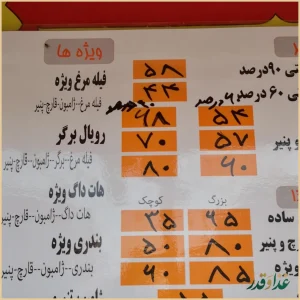 ویژه ها
فیله مرغ ویژه ۵۸
۴۴
فیله مرغ-ژامبون-قارچ-پنیر
تی ۹۰درصد
تی ۶۰ درصد
۹۰درصد ۶۰درصد
رویال برگر ۶۸ ۵۴
مرغ--برگر--ژامبون--قارچ-پنیر ۷۰ ۵۷
۸۰ ۶۰
هات داگ ویژه کوچک بزرگ
هات داگ-ژامبون-قارچ-پنیر ۳۵ ۶۵ ساده
بندری ویژه ۵۰ ۸۰ چ و پنیر
بندری-ژامبون--قارچ--پنیر ۶۰ ۸۵ ویژه
عدا و قدر